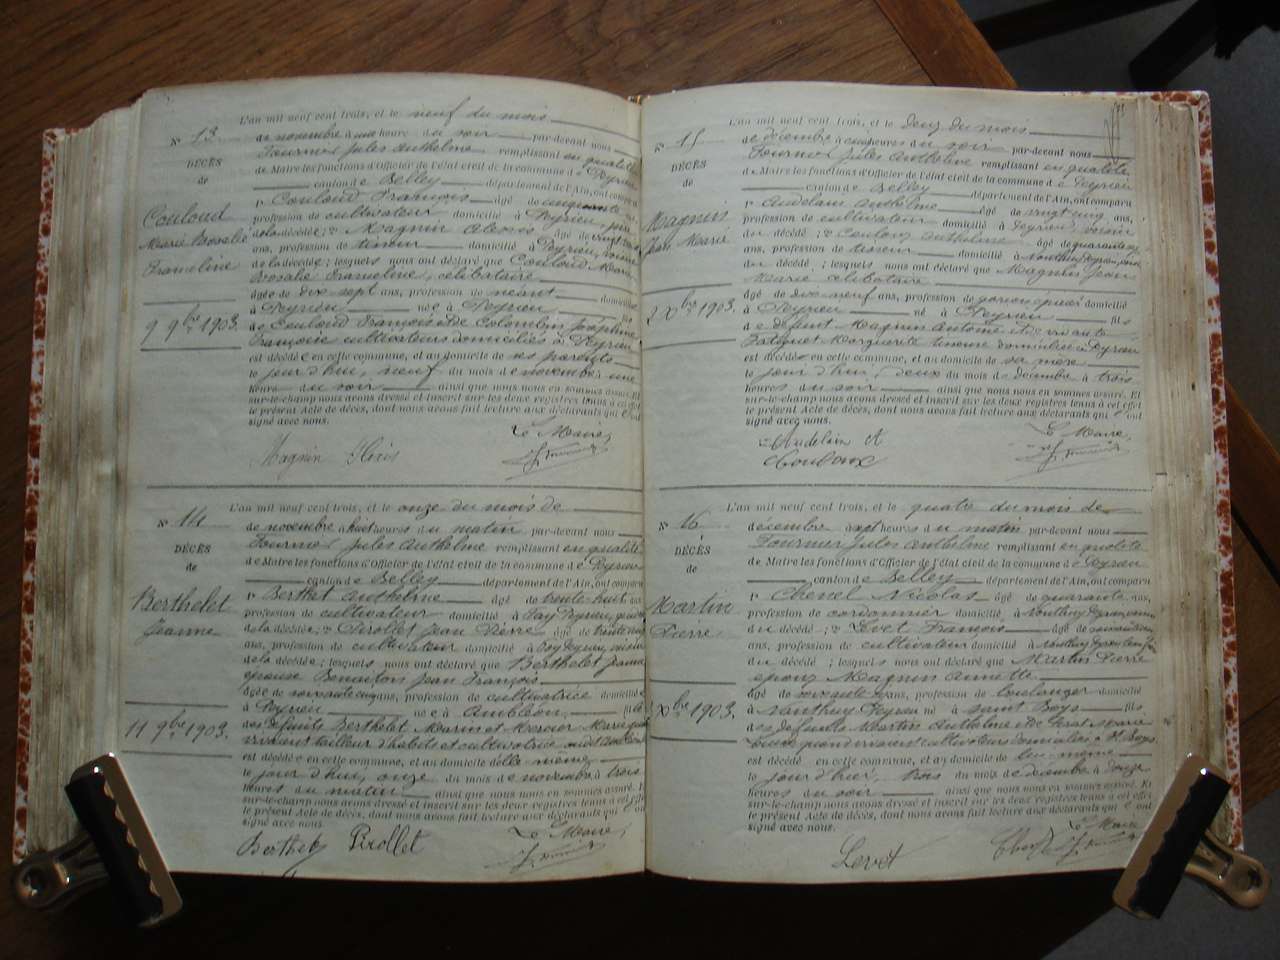 L'an mil neuf cent trois, et le neuf du mois
N° 13
de novembre à une heure du soir par-devant nous
DÉCÈS
Fournier Jules Anthelme remplissant en qualité
de
de Maire les fonctions d'Officier de l'état civil de la commune de Peyrieu
canton de Belley département de l'Ain, ont comparu
Couloud
Couloud François âgé de cinquante
Marie Rosalie
profession de cultivateur domicilié à Peyrieu, père
Frameline
de la décédée; Magnin Alexis âgé de vingt
ans, profession de tisseur domicilié à Peyrieu, voisin
de la décédée; lesquels nous ont déclaré que Couloud Marie
Rosalie Frameline, célibataire
âgée de dix sept ans, profession de néant domiciliée
à Peyrieu née à Peyrieu fille
9 9bre 1903.
de Couloud François et de Colomb Joséphine
Françoise cultivateurs domiciliés à Peyrieu
est décédée en cette commune, et au domicile de ses parents
le jour d'hui, neuf du mois de novembre à une
heure du soir ainsi que nous nous en sommes assuré. Et
sur-le-champ nous avons dressé et inscrit sur les deux registres tenus à cet effet
le présent Acte de décès, dont nous avons fait lecture aux déclarants qui ont
signé avec nous.
Le Maire,
Magnin Alexis
J. Fournier
L'an mil neuf cent trois, et le onze du mois de
N° 14
de novembre à huit heures du matin par-devant nous
DÉCÈS
Fournier Jules Anthelme remplissant en qualité
de
de Maire les fonctions d'Officier de l'état civil de la commune de Peyrieu
canton de Belley département de l'Ain, ont comparu
Berthelet
Berthet Anthelme âgé de trente huit ans
Jeanne
profession de cultivateur domicilié à Fay Peyrieu,
de la décédée; Pirollet Jean Pierre âgé de trente
ans, profession de cultivateur domicilié à Peyrieu, voisin
de la décédée; lesquels nous ont déclaré que Berthelet Jeanne
épouse Benaiton Jean François
âgée de soixante cinq ans, profession de cultivatrice domiciliée
à Peyrieu née à Ambléon, fille
11 9bre 1903.
des défunts Berthelet Marin et Mercier Marie
vivants tailleur d'habits et cultivatrice
est décédée en cette commune, et au domicile d'elle même
le jour d'hui, onze du mois de novembre à trois
heures du matin ainsi que nous nous en sommes assuré. Et
sur-le-champ nous avons dressé et inscrit sur les deux registres tenus à cet effet
le présent Acte de décès, dont nous avons fait lecture aux déclarants qui ont
signé avec nous.
Le Maire,
Berthet Pirollet
J. Fournier
L'an mil neuf cent trois, et le deux du mois
N° 15
de décembre à cinq heures du soir par-devant nous
DÉCÈS
Fournier Jules Anthelme remplissant en qualité
de
de Maire les fonctions d'Officier de l'état civil de la commune de Peyrieu
canton de Belley département de l'Ain, ont comparu
Magnin
Audelain Anthelme âgé de vingt cinq ans,
Jean Marie
profession de cultivateur domicilié à Peyrieu, voisin
du décédé; Couloux Anthelme âgé de quarante
ans, profession de tisseur domicilié à Nanthuy Peyrieu,
du décédé; lesquels nous ont déclaré que Magnin Jean
Marie célibataire
âgé de dix neuf ans, profession de garçon épicier domicilié
à Peyrieu né à Peyrieu fils
2 Xbre 1903.
de défunt Magnin Antoine et de vivante
Marguerite tisseuse domiciliée à Peyrieu
est décédé en cette commune, et au domicile de sa mère
le jour d'hui, deux du mois de décembre à trois
heures du soir ainsi que nous nous en sommes assuré. Et
sur-le-champ nous avons dressé et inscrit sur les deux registres tenus à cet effet
le présent Acte de décès, dont nous avons fait lecture aux déclarants qui ont
signé avec nous.
Le Maire,
Audelain A
Couloux
J. Fournier
L'an mil neuf cent trois, et le quatre du mois de
N° 16
décembre à sept heures du matin par-devant nous
DÉCÈS
Fournier Jules Anthelme remplissant en qualité
de
de Maire les fonctions d'Officier de l'état civil de la commune de Peyrieu
canton de Belley département de l'Ain, ont comparu
Martin
Chenel Nicolas âgé de quarante ans,
Pierre
profession de cordonnier domicilié à Nanthuy Peyrieu,
du décédé; Levet François âgé de
ans, profession de cultivateur domicilié à Nanthuy Peyrieu
du décédé; lesquels nous ont déclaré que Martin Pierre
époux Magnin Annette
âgé de soixante ans, profession de boulanger domicilié
à Nanthuy Peyrieu né à Saint Bois fils
3 Xbre 1903.
des défunts Martin Anthelme et de Marie
vivants cultivateurs domiciliés à St Bois
est décédé en cette commune, et au domicile de lui même
le jour d'hier, trois du mois de décembre à douze
heures du soir ainsi que nous nous en sommes assuré. Et
sur-le-champ nous avons dressé et inscrit sur les deux registres tenus à cet effet
le présent Acte de décès, dont nous avons fait lecture aux déclarants qui ont
signé avec nous.
Le Maire
Levet
J. Fournier